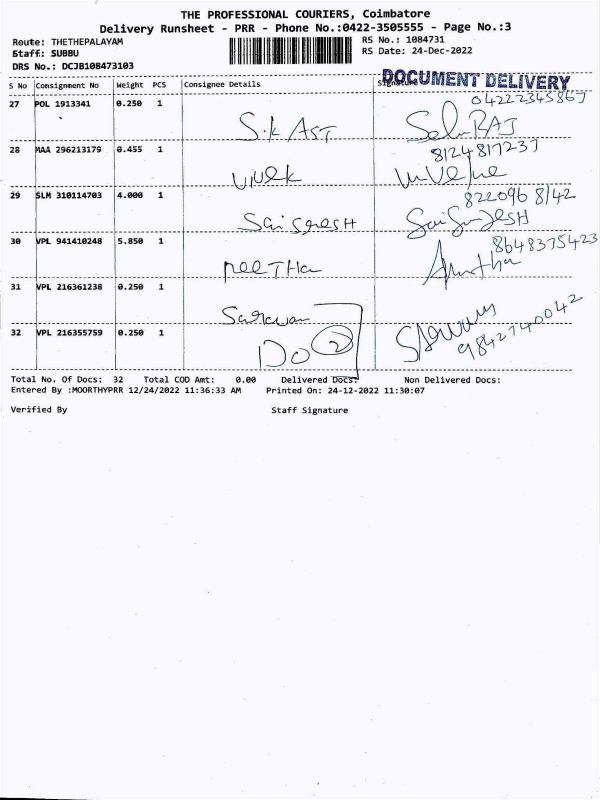 THE PROFESSIONAL COURIERS, Coimbatore
Delivery Runsheet - PRR - Phone No.:0422-3505555 - Page No.:3
Route: THETHEPALAYAM
RS No.: 1084731
Staff: SUBBU
RS Date: 24-Dec-2022
DRS No.: DCJB108473103
DOCUMENT DELIVERY
S No Consignment No Weight PCS Consignee Details Signature
27 POL 1913341 0.250 1
S.K AST
28 MAA 296213179 0.455 1
8124817237
Vivek
29 SLM 310114703 4.000 1
8220968142
30 VPL 941410248 5.850 1
8648375423
31 VPL 216361238 0.250 1
Saravan
9842740042
32 VPL 216355759 0.250 1
Do 2
Total No. Of Docs: 32 Total COD Amt: 0.00 Delivered Docs: Non Delivered Docs:
Entered By :MOORTHYPRR 12/24/2022 11:36:33 AM Printed On: 24-12-2022 11:30:07
Verified By Staff Signature